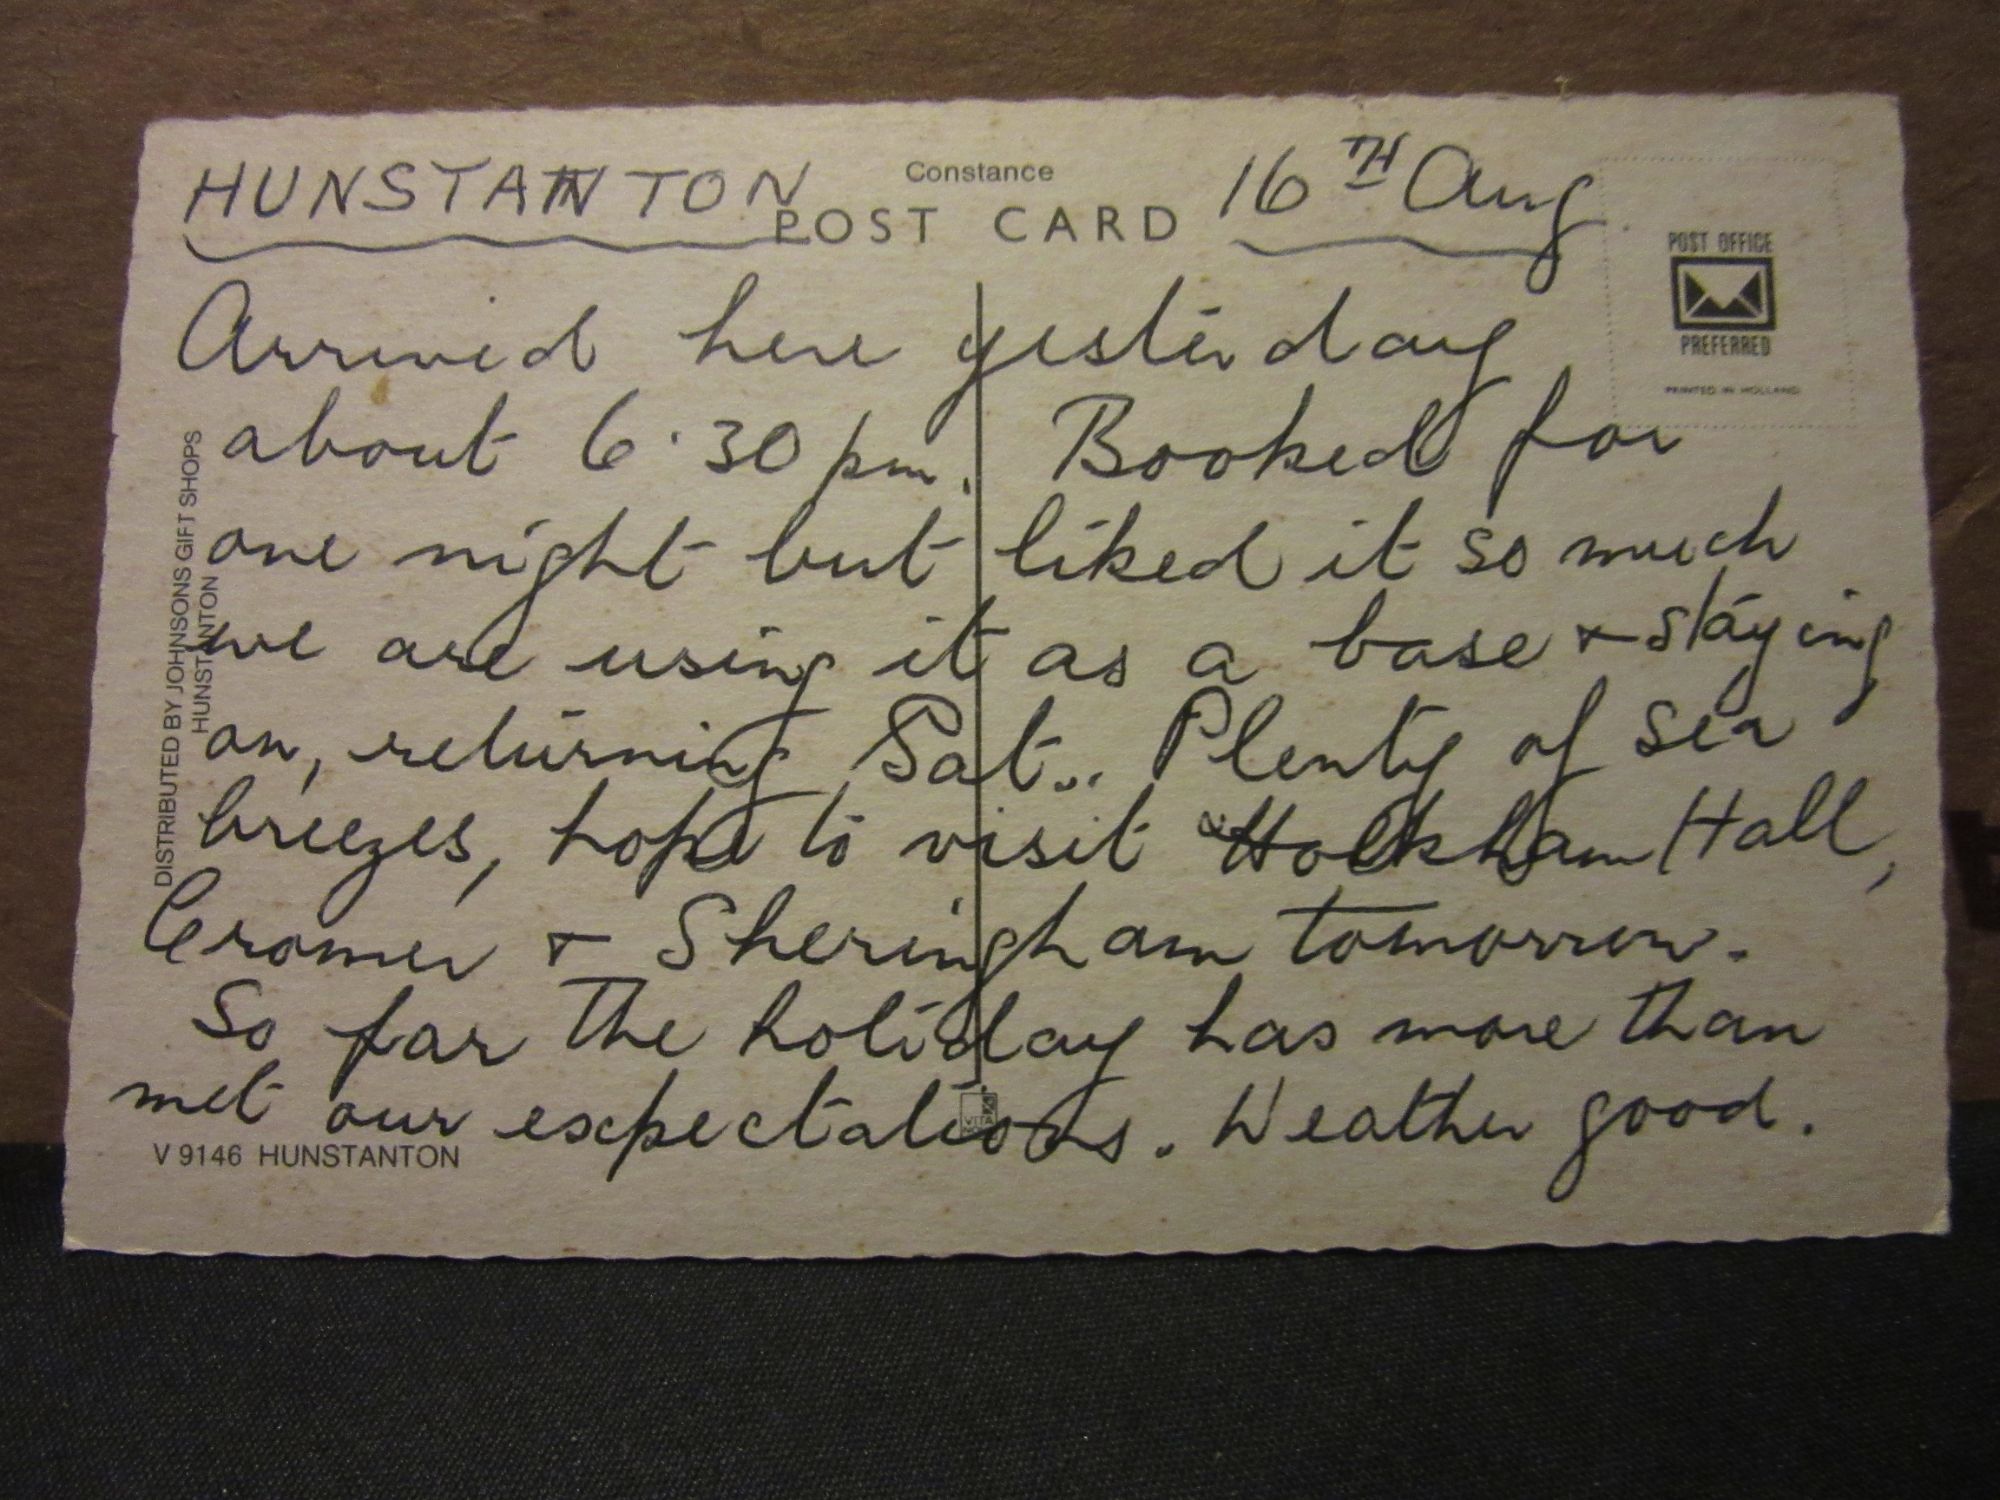 HUNSTANTON
Constance
POST CARD
16TH Aug.
POST OFFICE
PREFERRED
PRINTED IN HOLLAND
Arrived here yesterday
about 6·30 pm. Booked for
one night but liked it so much
we are using it as a base + staying
on, returning Sat.. Plenty of sea
breezes, hope to visit Holkham Hall,
Cromer + Sheringham tomorrow.
So far the holiday has more than
met our expectations. Weather good.
DISTRIBUTED BY JOHNSONS GIFT SHOPS
HUNSTANTON
V 9146 HUNSTANTON